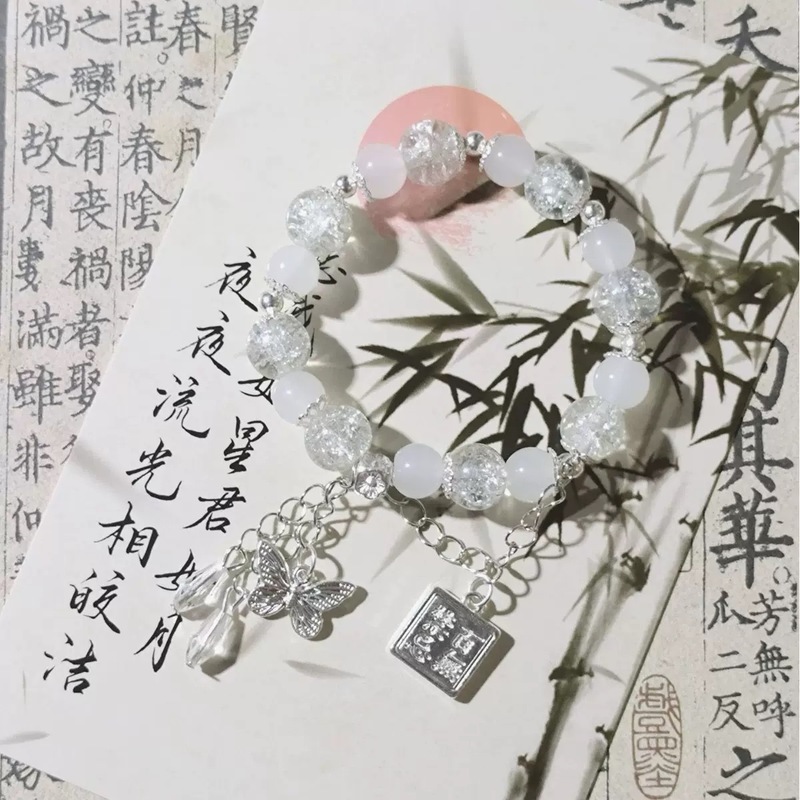 夭
其華
芳無呼
瓜二反
之
賢
春之月
註。仲春陰陽
之變。有喪禍者娶
禍之故月數滿雖非仲
我如星君如月
夜夜流光相皎洁
百無
禁忌